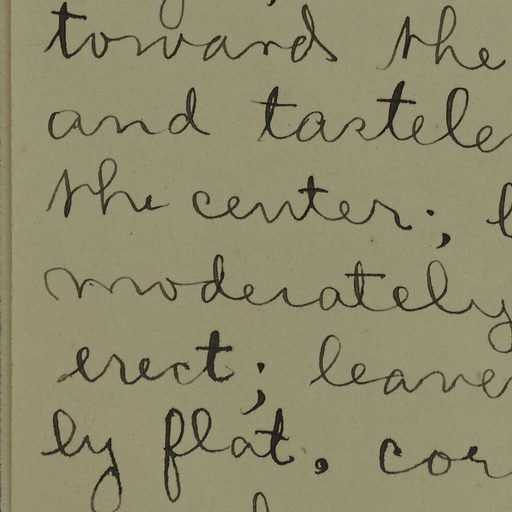 towards the
and tastele
the center;
moderately
erect; leave
ly flat, cor